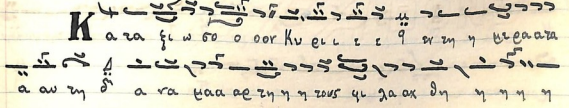 Κα τα ξι ω σο ο οον Κυ ρι ι ε ε εν τη η με ρα α τα
α αυ τη α να μαα αρ τη η η τους φυ λα αχ θη η η η η